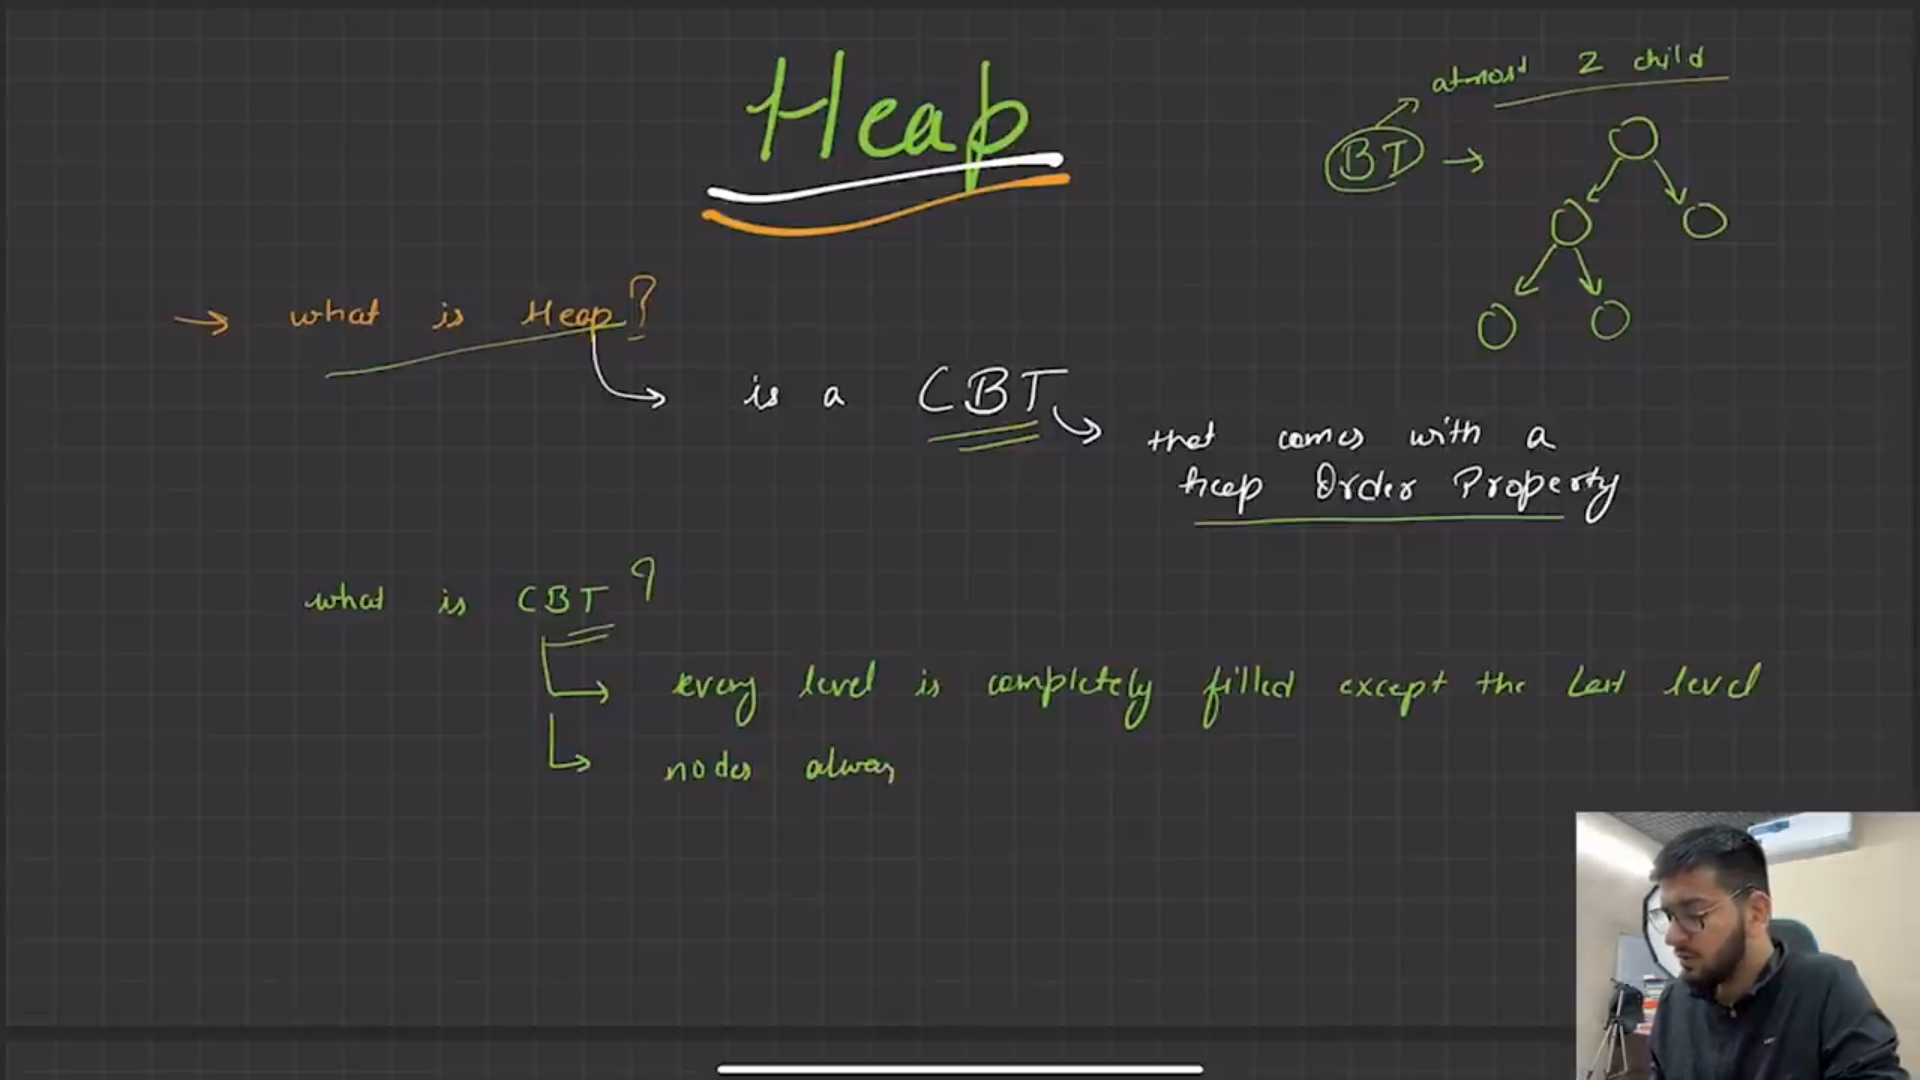 Heap
atmost 2 child
BT
what is Heap?
is a CBT
that comes with a
heap Order Property
what is CBT?
every level is completely filled except the last level
nodes alway